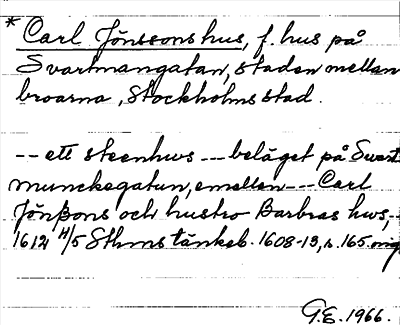 * Carl Jönssons hus, f. hus på
Svartmangatan, staden mellan
broarna, Stockholms stad.
-- ett steenhws --- beläget på Swart
munckegatun, emellan --- Carl
Jönßons och hustro Barbras hws, --
1612 4/5 Sthms tänkeb. 1608-13, s. 165. orig
G.E. 1966.